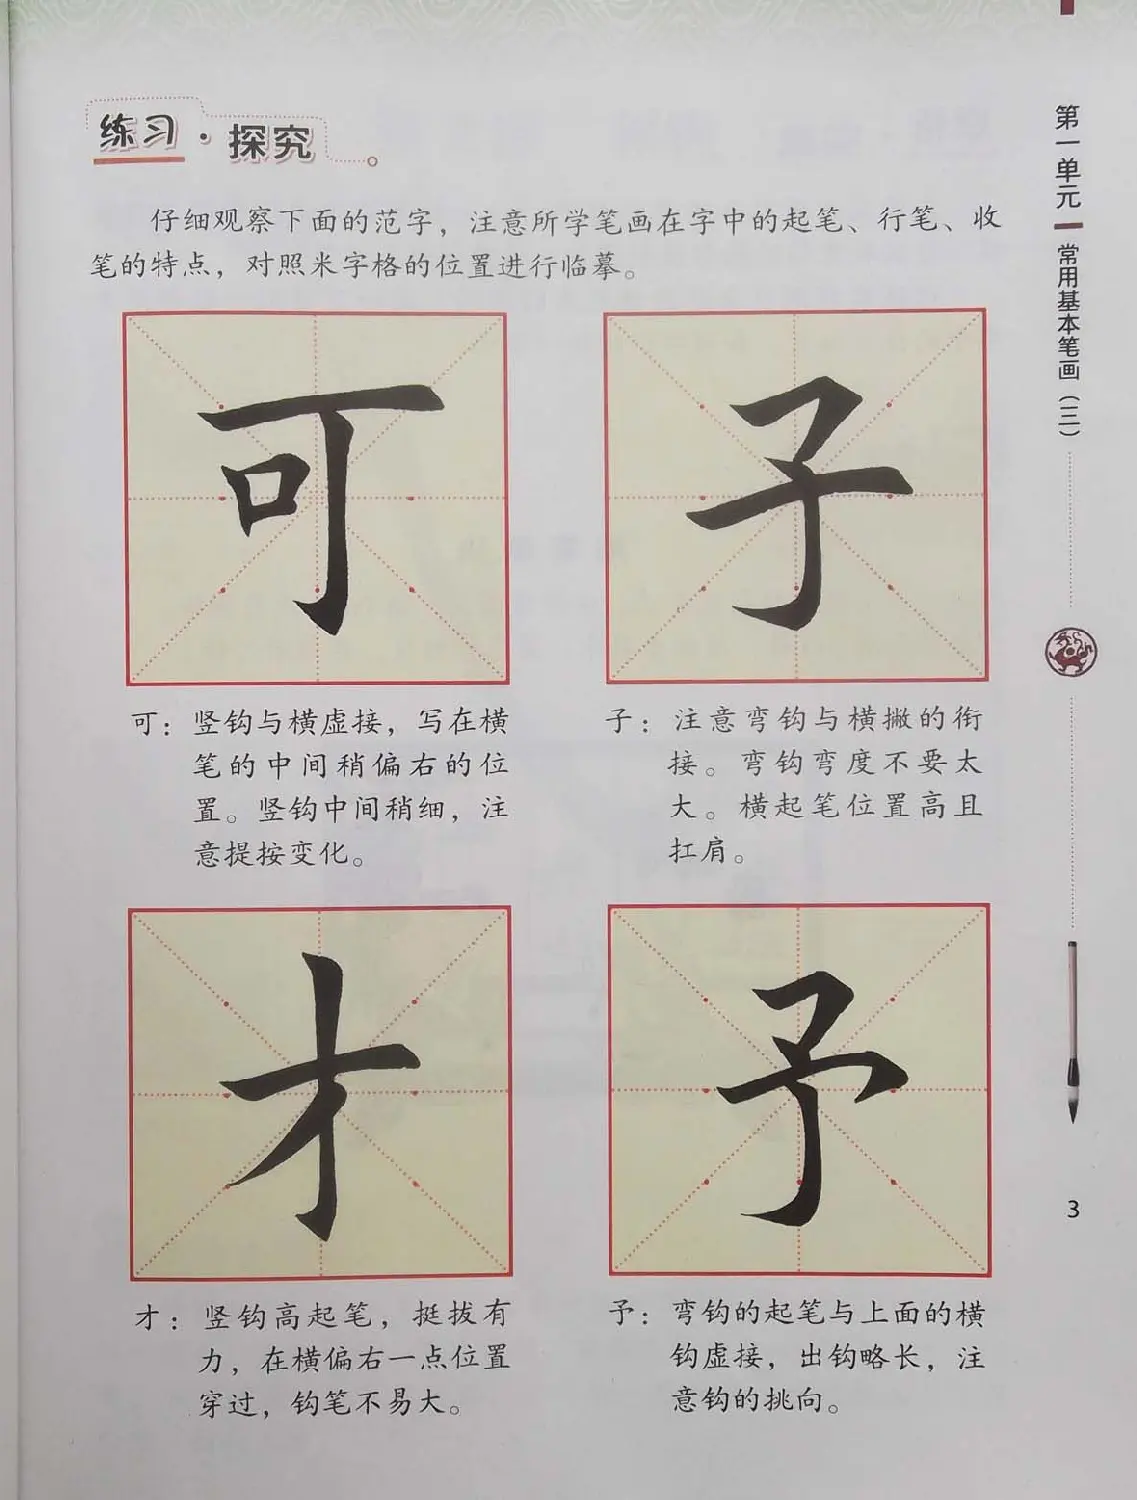 练习·探究
仔细观察下面的范字，注意所学笔画在字中的起笔、行笔、收
笔的特点，对照米字格的位置进行临摹。
可
子
可：竖钩与横虚接，写在横
笔的中间稍偏右的位
置。竖钩中间稍细，注
意提按变化。
子：注意弯钩与横撇的衔
接。弯钩弯度不要太
大。横起笔位置高且
扛肩。
才
予
才：竖钩高起笔，挺拔有
力，在横偏右一点位置
穿过，钩笔不易大。
予：弯钩的起笔与上面的横
钩虚接，出钩略长，注
意钩的挑向。
第一单元
常用基本笔画（三）
3